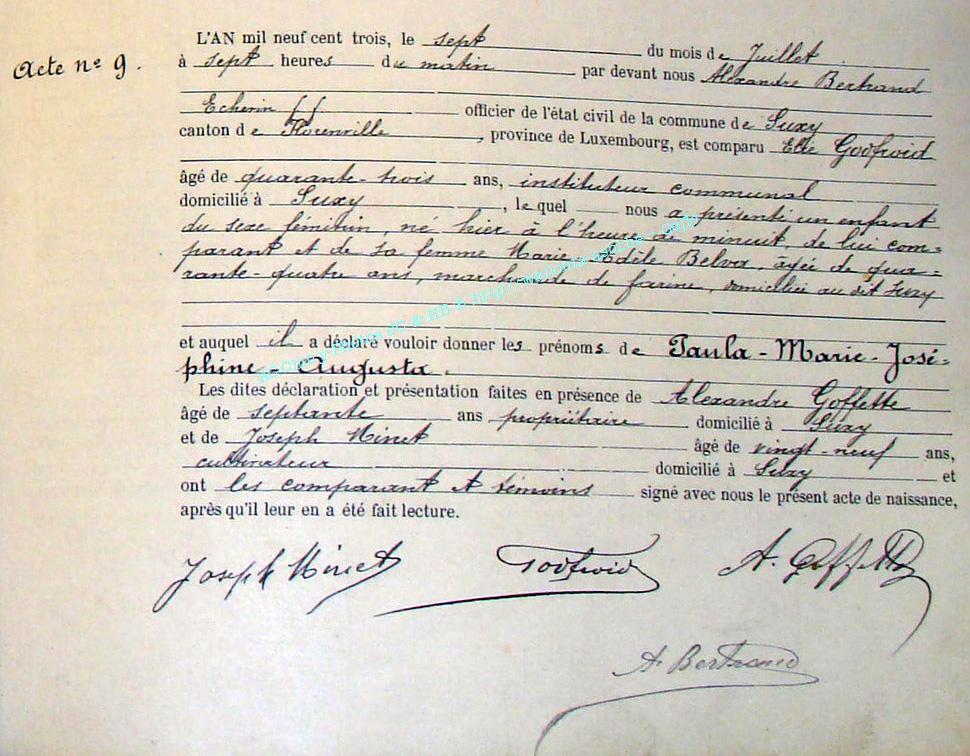 Acte nº 9.
L'AN mil neuf cent trois, le sept du mois de Juillet
à sept heures du matin par devant nous Alexandre Bertrand
Echevin ff officier de l'état civil de la commune de Suxy
canton de Florenville, province de Luxembourg, est comparu Elie Godfroid
âgé de quarante-trois ans, instituteur communal
domicilié à Suxy, lequel nous a présenté un enfant
du sexe féminin, né hier à l'heure de minuit, de lui com=
parant et de sa femme Marie Adèle Belva, âgée de qua=
rante-quatre ans, marchande de farine, domiciliée au dit Suxy
et auquel il a déclaré vouloir donner les prénoms de Paula-Marie-José-
phine-Augusta.
Les dites déclaration et présentation faites en présence de Alexandre Goffette
âgé de septante ans propriétaire domicilié à Suxy
et de Joseph Ninet âgé de vingt-neuf ans,
cultivateur domicilié à Suxy et
ont les comparant et témoins signé avec nous le présent acte de naissance,
après qu'il leur en a été fait lecture.
Joseph Ninet Godfroid A. Goffette
A. Bertrand